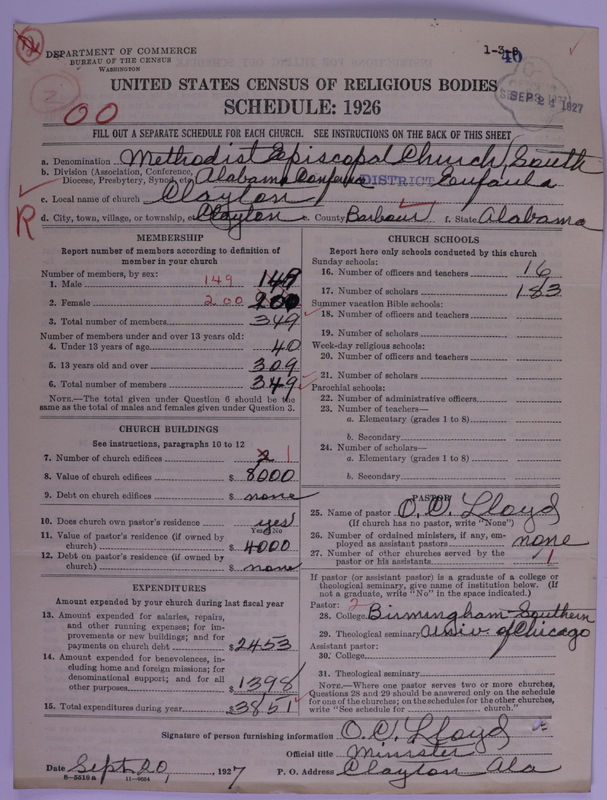 DEPARTMENT OF COMMERCE
BUREAU OF THE CENSUS
WASHINGTON
1-3-8
40
SEP 24 1927
UNITED STATES CENSUS OF RELIGIOUS BODIES
SCHEDULE: 1926
2
00
FILL OUT A SEPARATE SCHEDULE FOR EACH CHURCH. SEE INSTRUCTIONS ON THE BACK OF THIS SHEET
a. Denomination Methodist Episcopal Church, South
b. Division (Association, Conference, Diocese, Presbytery, Synod, etc.) Alabama Conference DISTRICT Eufaula
c. Local name of church Clayton
R
d. City, town, village, or township, etc. Clayton e. County Barbour f. State Alabama
MEMBERSHIP
Report number of members according to definition of
member in your church
Number of members, by sex:
1. Male 149 149
2. Female 200 200
3. Total number of members 349
Number of members under and over 13 years old:
4. Under 13 years of age 40
5. 13 years old and over 309
6. Total number of members 349
NOTE.—The total given under Question 6 should be the
same as the total of males and females given under Question 3.
CHURCH BUILDINGS
See instructions, paragraphs 10 to 12
7. Number of church edifices 1
8. Value of church edifices $ 8000
9. Debt on church edifices $ none
10. Does church own pastor's residence yes
Yes or No
11. Value of pastor's residence (if owned by
church) $ 4000
12. Debt on pastor's residence (if owned by
church) $ none
EXPENDITURES
Amount expended by your church during last fiscal year
13. Amount expended for salaries, repairs,
and other running expenses; for im-
provements or new buildings; and for
payments on church debt $ 2453
14. Amount expended for benevolences, in-
cluding home and foreign missions; for
denominational support; and for all
other purposes $ 1398
15. Total expenditures during year $ 3851
CHURCH SCHOOLS
Report here only schools conducted by this church
Sunday schools:
16. Number of officers and teachers 16
17. Number of scholars 183
Summer vacation Bible schools:
18. Number of officers and teachers
19. Number of scholars
Week-day religious schools:
20. Number of officers and teachers
21. Number of scholars
Parochial schools:
22. Number of administrative officers
23. Number of teachers—
a. Elementary (grades 1 to 8)
b. Secondary
24. Number of scholars—
a. Elementary (grades 1 to 8)
b. Secondary
PASTOR
25. Name of pastor O. C. Lloyd
(If church has no pastor, write "None")
26. Number of ordained ministers, if any, em-
ployed as assistant pastors none
27. Number of other churches served by the
pastor or his assistants 1
If pastor (or assistant pastor) is a graduate of a college or
theological seminary, give name of institution below. (If
not a graduate, write "No" in the space indicated.)
Pastor: 2
28. College Birmingham-Southern
29. Theological seminary Univ. of Chicago
Assistant pastor:
30. College
31. Theological seminary
NOTE.—Where one pastor serves two or more churches,
Questions 28 and 29 should be answered only on the schedule
for one of the churches; on the schedules for the other churches,
write "See schedule for church."
Signature of person furnishing information O. C. Lloyd
Official title Minister
Date Sept. 20, 1927 P. O. Address Clayton Ala